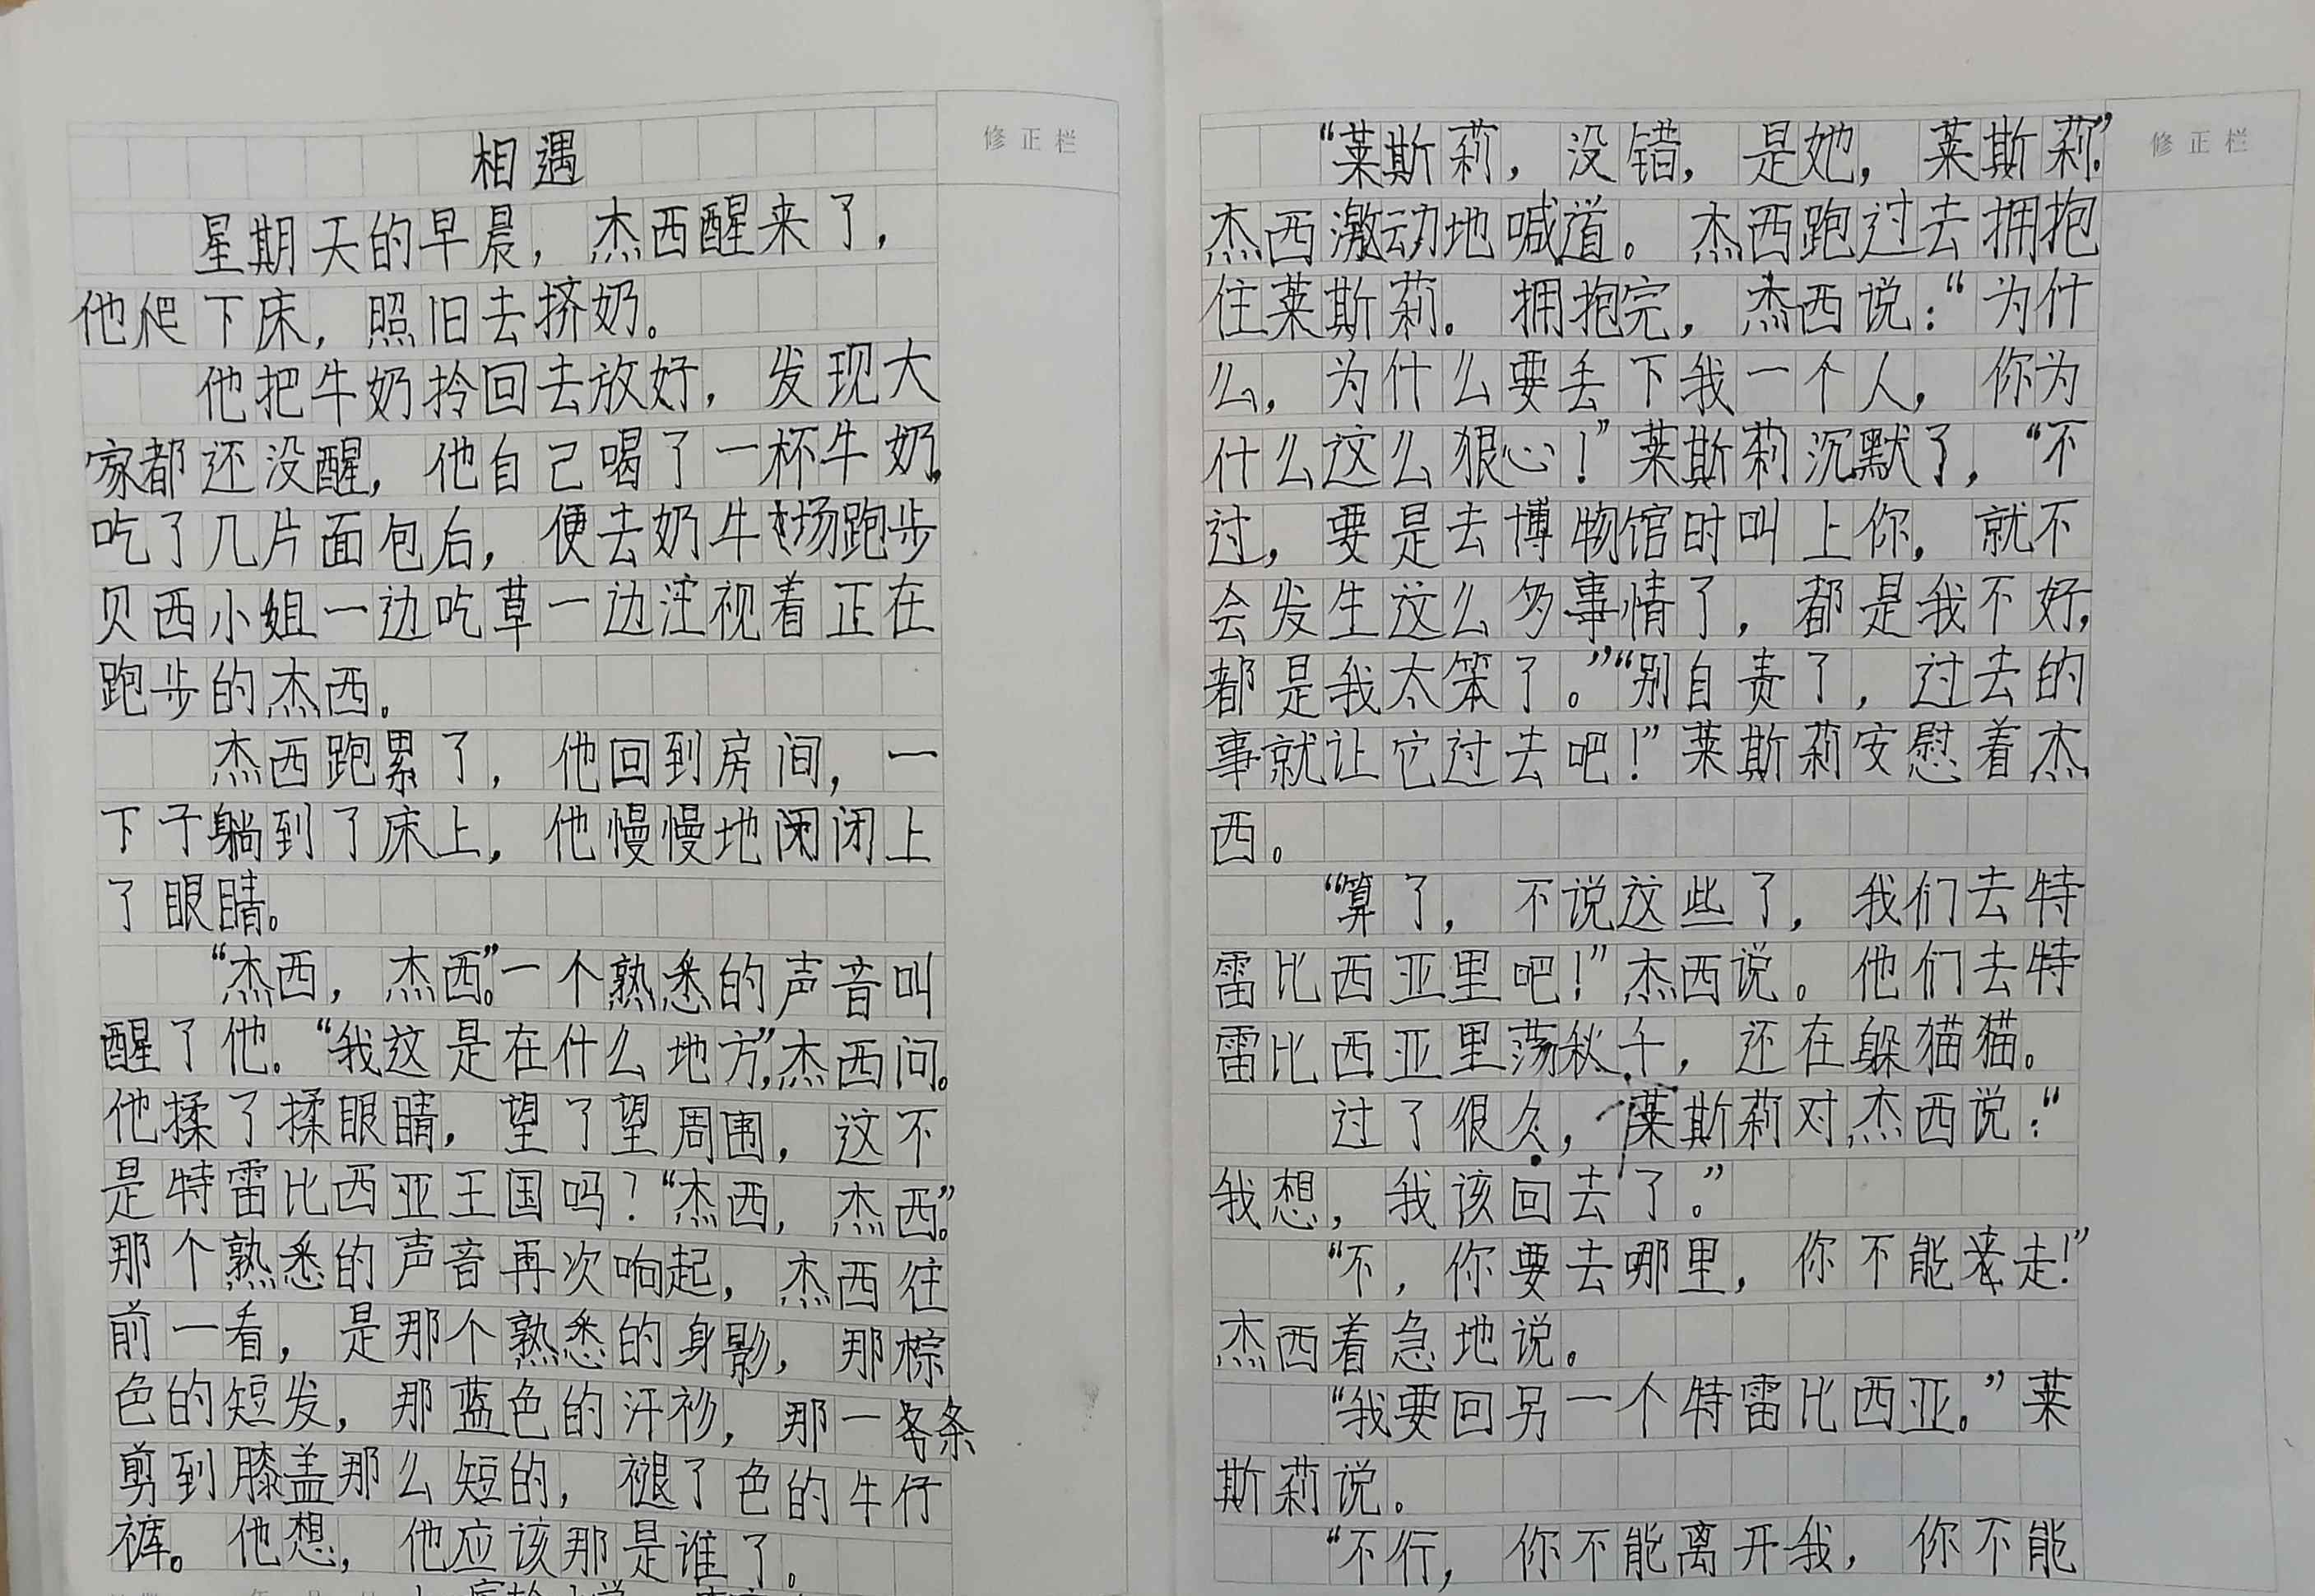 相遇
修正栏
星期天的早晨，杰西醒来了，
他爬下床，照旧去挤奶。
他把牛奶拎回去放好，发现大
家都还没醒，他自己喝了一杯牛奶，
吃了几片面包后，便去奶牛场跑步
贝西小姐一边吃草一边注视着正在
跑步的杰西。
杰西跑累了，他回到房间，一
下子躺到了床上，他慢慢地闭闭上
了眼睛。
“杰西，杰西。”一个熟悉的声音叫
醒了他。“我这是在什么地方”，杰西问。
他揉了揉眼睛，望了望周围，这不
是特雷比西亚王国吗？“杰西，杰西。”
那个熟悉的声音再次响起，杰西往
前一看，是那个熟悉的身影，那棕
色的短发，那蓝色的汗衫，那一条
剪到膝盖那么短的，褪了色的牛仔
裤。他想，他应该那是谁了。
修正栏
“莱斯莉，没错，是她，莱斯莉。”
杰西激动地喊道。杰西跑过去拥抱
住莱斯莉。拥抱完，杰西说：“为什
么，为什么要丢下我一个人，你为
什么这么狠心！”莱斯莉沉默了，“不
过，要是去博物馆时叫上你，就不
会发生这么多事情了，都是我不好，
都是我太笨了。”“别自责了，过去的
事就让它过去吧！”莱斯莉安慰着杰
西。
“算了，不说这些了，我们去特
雷比西亚里吧！”杰西说。他们去特
雷比西亚里荡秋千，还在躲猫猫。
过了很久，莱斯莉对杰西说：“
我想，我该回去了。”
“不，你要去哪里，你不能走！”
杰西着急地说。
“我要回另一个特雷比西亚。”莱
斯莉说。
“不行，你不能离开我，你不能